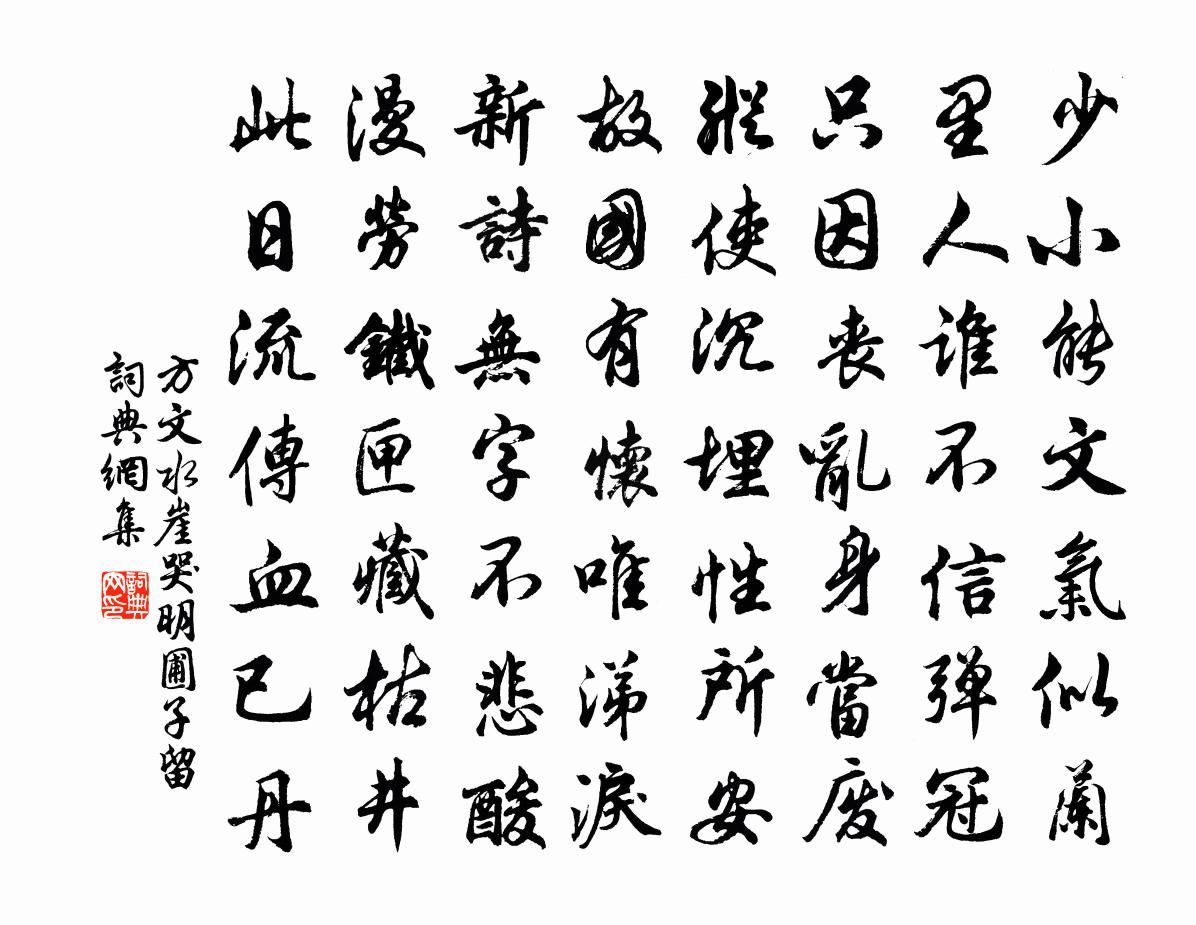 少小能文氣似蘭
里人誰不信彈冠
只因喪亂身當廢
縱使沉埋性所安
故國有懷唯涕淚
新詩無字不悲酸
漫勞鐵匣藏枯井
此日流傳血已丹
方文水崖哭明圃子留
詞典網集
詞典网印